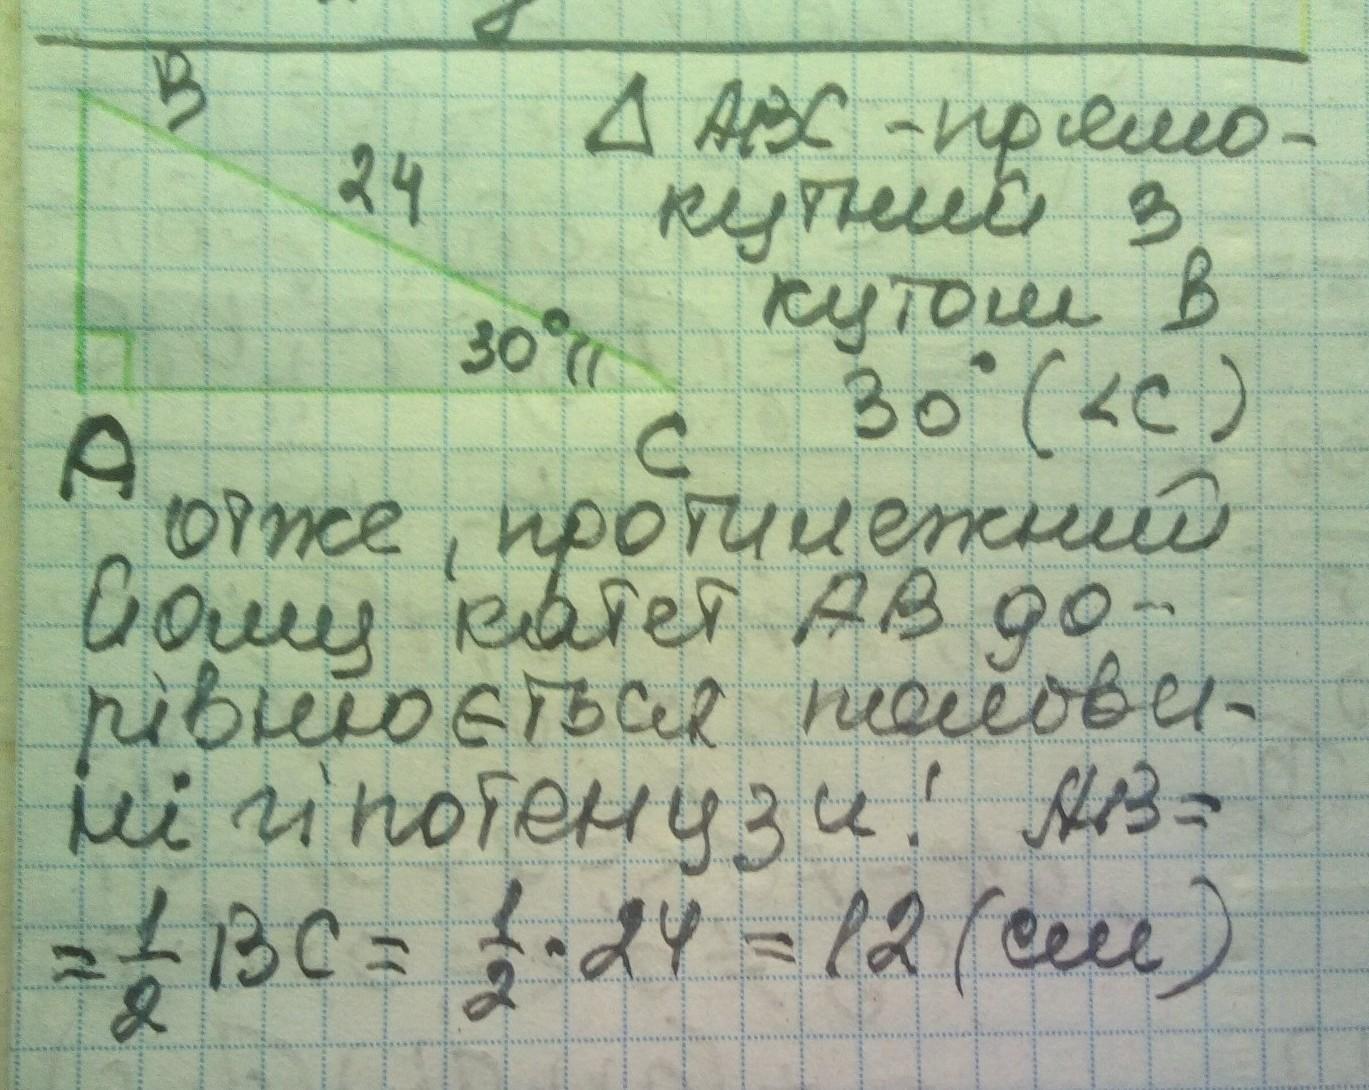 B
24
30°
A
C
Δ ABC - прямо-
кутний з
кутом В
30° (<C)
отже, протилежний
йому катет AB до-
рівнюється полови-
ні гіпотенузи! AB=
= 1/2 BC = 1/2 · 24 = 12 (см)